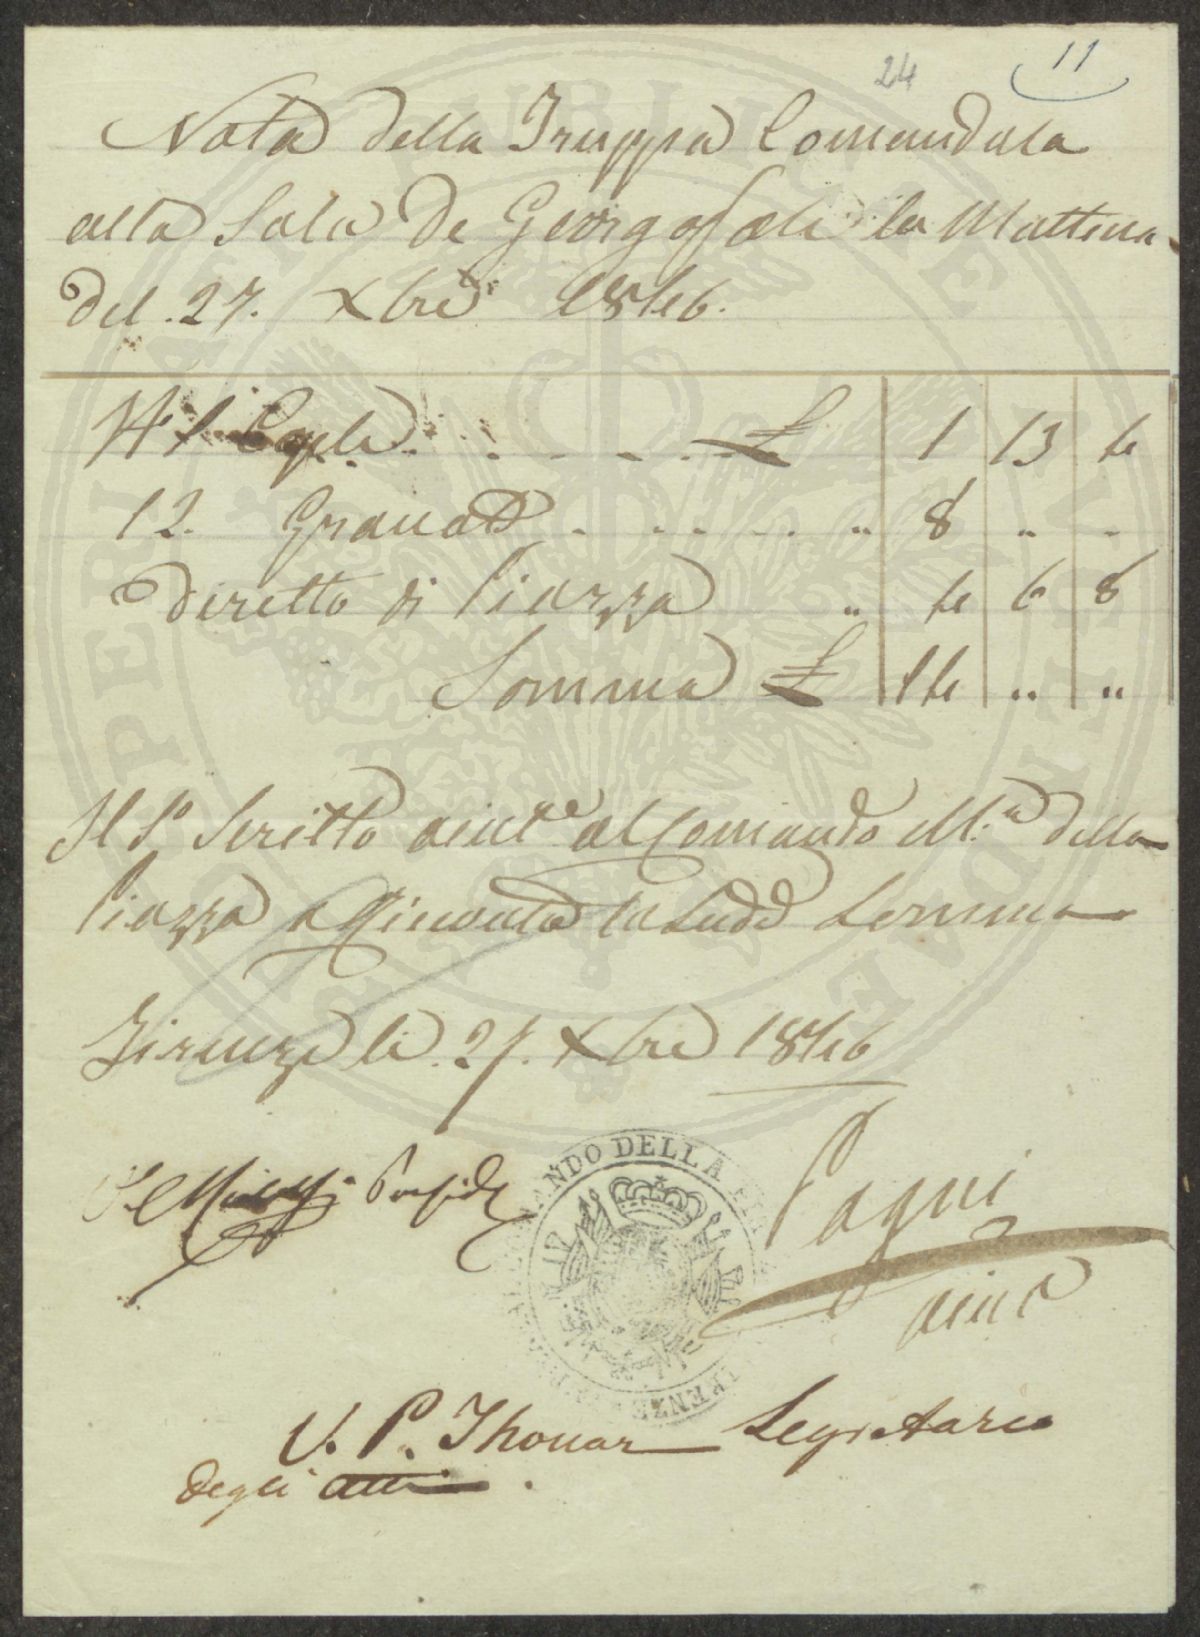 24 11
Nota della Truppa Comandata
alla Sala de Georgofili la Mattina
del. 27. Xbre 1846.
N° 1 Caple. £ 1 13 4
12. Granati " 8 " -
Diretto di Piazza " 4 6 8
Somma £ 14 " "
Il So Scritto aiute al Comando Mre della
Piazza a Ricevuto la Sudd Somma
Firenze li. 27. Xbre 1846
Preside
Pagni
aiute
COMANDO DELLA
FIRENZE
V. P. Thouar Segretario
degli atti.
PUBLICAE UTILITATI PROSPERITATI